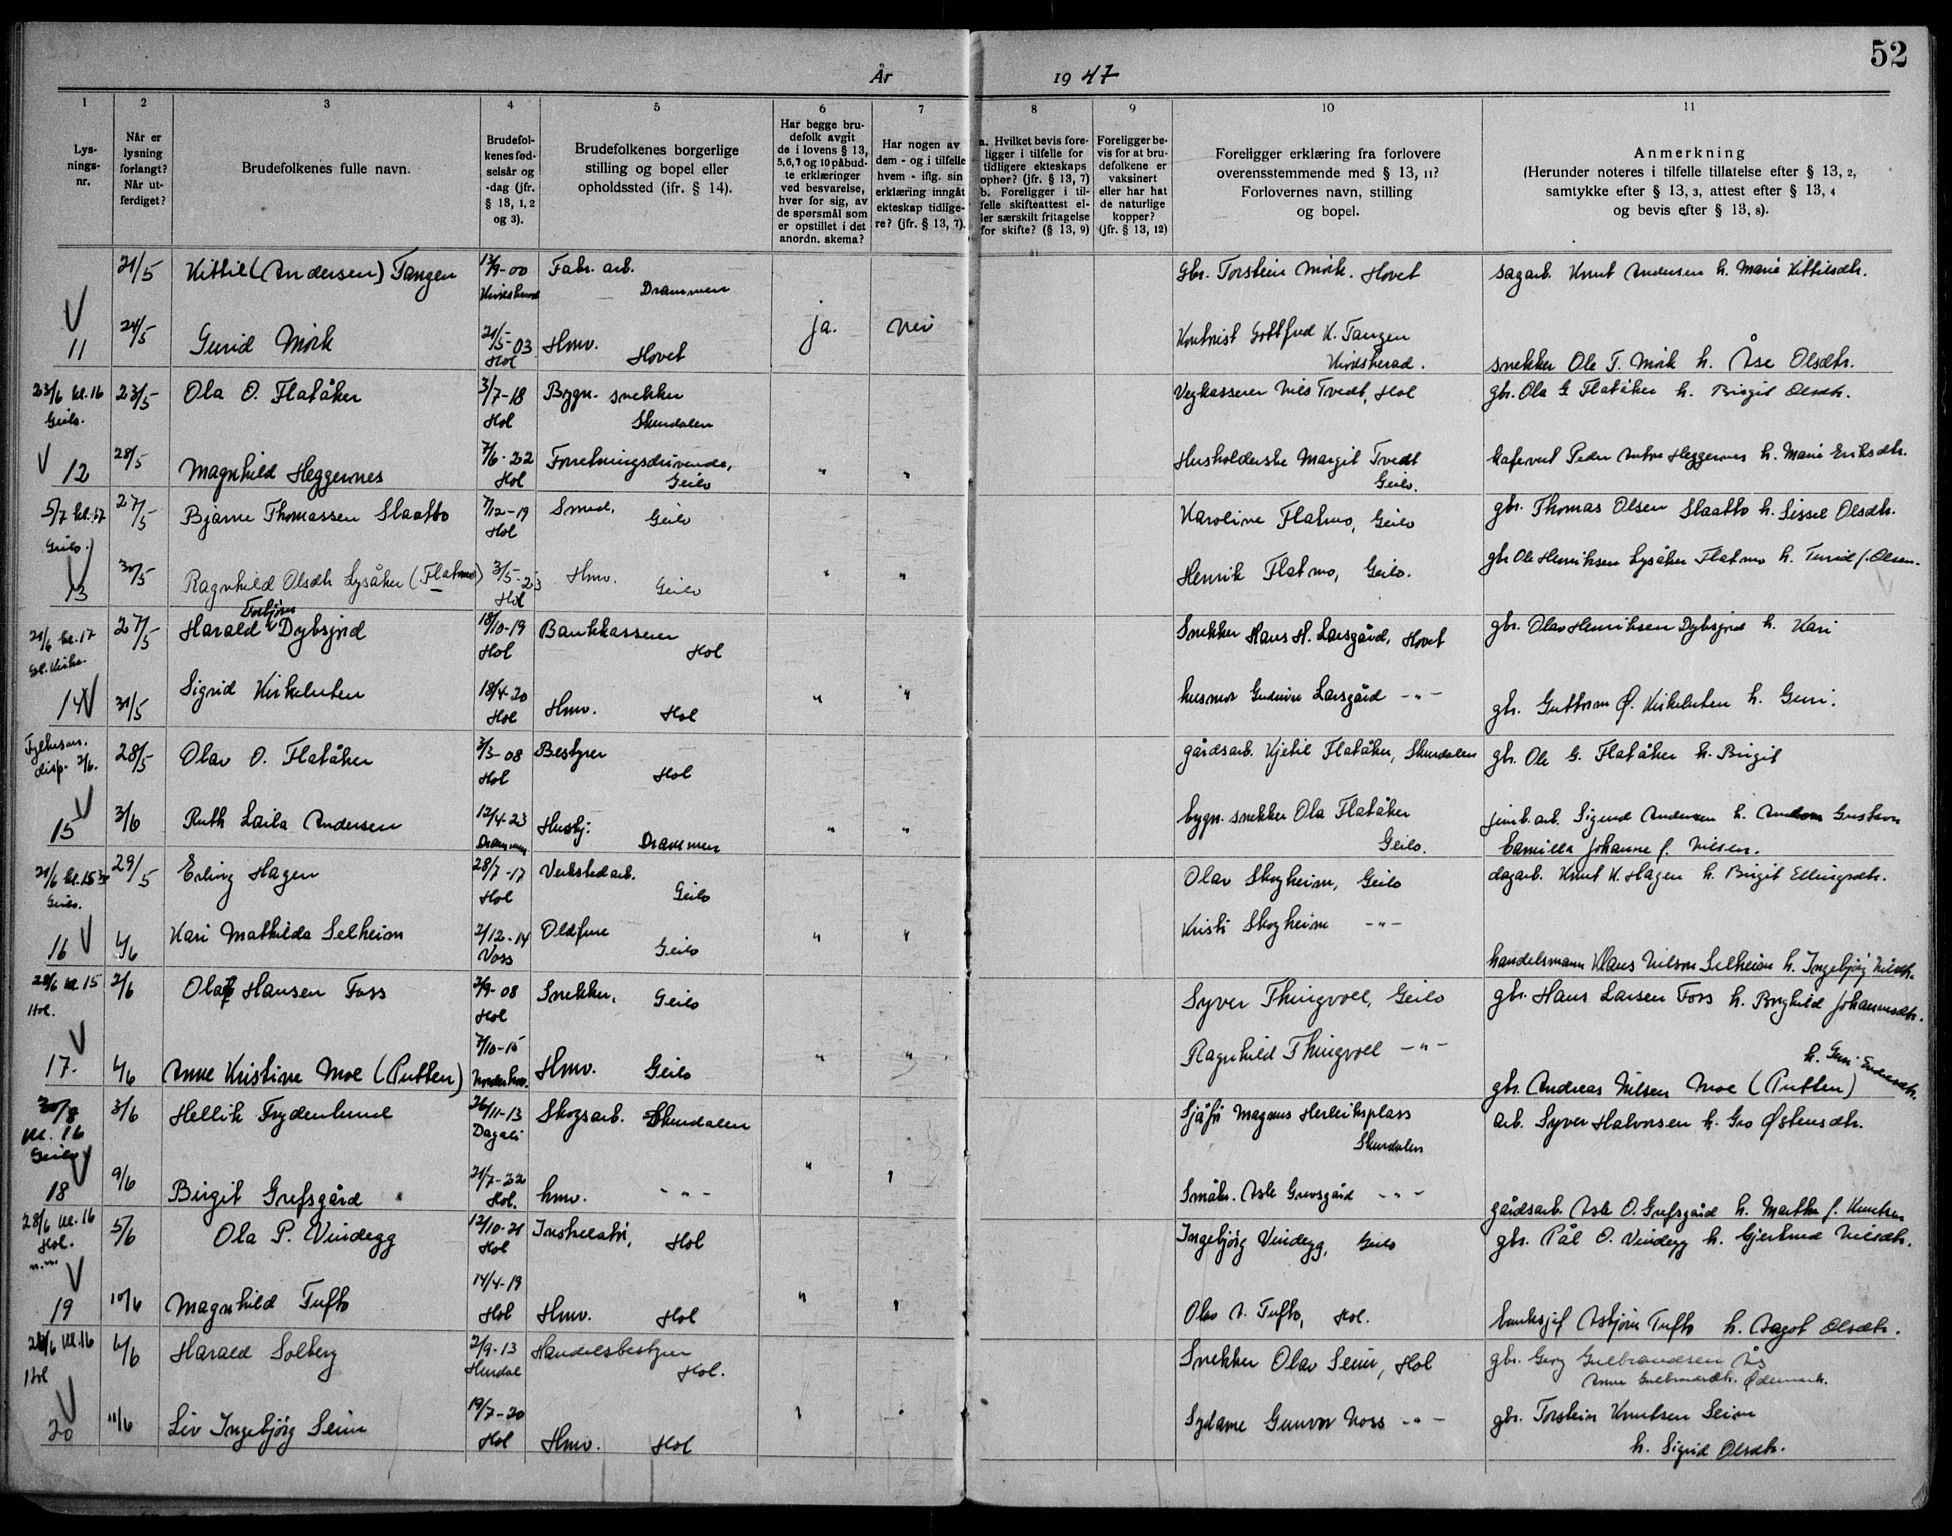 52
År 1947
1
2
3
4
5
6
7
8
9
10
11
Lys-
nings-
nr.
Når er
lysning
forlangt?
Når ut-
ferdiget?
Brudefolkenes fulle navn.
Brudefol-
kenes fød-
selsår og
-dag (jfr.
§ 13, 1, 2
og 3).
Brudefolkenes borgerlige
stilling og bopel eller
opholdssted (ifr. § 14).
Har begge bru-
defolk avgit
de i lovens § 13,
5, 6, 7 og 10 påbud-
te erklæringer
ved besvarelse,
hver for sig, av
de spørsmål som
er opstillet i det
anordn. skema?
Har nogen av
dem - og i tilfelle
hvem - iflg. sin
erklæring inngått
ekteskap tidlige-
re? (jfr. § 13, 7).
a. Hvilket bevis fore-
ligger i tilfelle for
tidligere ekteskaps
ophør? (jfr. § 13, 7)
b. Foreligger i til-
felle skifteattest el-
ler særskilt fritagelse
for skifte? (§ 13, 9)
Foreligger be-
vis for at bru-
defolkene er
vaksinert
eller har hat
de naturlige
kopper?
(jfr. § 13, 12)
Foreligger erklæring fra forlovere
overensstemmende med § 13, 11?
Forlovernes navn, stilling
og bopel.
Anmerkning
(Herunder noteres i tilfelle tillatelse efter § 13, 2,
samtykke efter § 13, 3, attest efter § 13, 4
og bevis efter § 13, 8).
21/5 Kittil (Andersen) Tangen /9-00 Fabr. arb. Drammen Gbr. Torstein Mørk. Hovet sagarb. Knut Andersen h. Marie Kittilsdtr.
11 24/5 Gunid Mørk 21/5-03 Hol Hmv. Hovet ja. nei Gottfred K. Tangen snekker Ole T. Mørk h. Åse Olsdtr.
23/6 kl. 16 Geilo. 23/5 Ola O. Flatåker 3/7-18 Hol Bygn. snekker Skurdalen Vegkasserer Nils Tvedt, Hol gbr. Ola G Flatåker h. Birgit Olsdtr.
12 28/5 Magnhild Heggernes 7/6-22 Hol Forretningsdrivende, Geilo " " Husholderske Margit Tvedt Geilo. kafevert Peder Anton Heggernes h. Marie Eriksdtr.
5/7 kl. 17 Geilo. 27/5 Bjarne Thomassen Slaatto 7/12-19 Hol Smed, Geilo Karoline Flatmo, Geilo gbr. Thomas Olsen Slaatto h. Sissel Olsdtr.
13 30/5 Ragnhild Olsdtr Lysåker (Flatmo) 3/5-23 Hol Hmv. Geilo " " Henrik Flatmo, Geilo. gbr Ole Henriksen Lysåker Flatmo h. Turid f. Olsen.
21/6 kl. 17 Gl. Kirke. 27/5 Harald Torbjørn Dybsjord 18/10-19 Hol Bankkasserer Hol Snekker Hans H. Larsgård, Hovet gbr. Olav Henriksen Dybsjord h. Kari
14 31/5 Sigrid Kirkeluten 18/4-20 Hol Hmv. Hol " " husmor Larsgård -"- gbr. Guttorm Ø. Kirkeluten h. Guri.
Fylkesm. disp. 2/6. 28/5 Olav O. Flatåker 2/3-08 Hol Bestyrer Hol gårdsarb. Kjetil Flatåker, Skurdalen gbr. Ole G. Flatåker h. Birgit
15 3/6 Ruth Laila Andersen 12/4-23 Drammen Husbj. Drammen " " bygn. snekker Ola Flatåker Geilo. jernb. arb. Sigurd Andersen h. Gustava
Camilla Johanne f. Nilsen.
21/6 kl. 15 30 Geilo. 29/5 Erling Hagen 28/7-17 Hol Verkstedarb. Geilo Olav Skogheim, Geilo dagarb. Knut K. Hagen h. Birgit Ellingsdtr.
16 4/6 Kari Mathilda Selheim 2/12-14 Voss Oldfrue Geilo " " Kristi Skogheim -"- handelsmann Klaus Nilson Selheim h. Ingebjørg Nilsdtr.
28/6 kl. 15 Hol. 2/6 Olaf Hansen Foss 2/9-08 Hol Snekker, Geilo Syver Thingvoll, Geilo gbr. Hans Larsen Foss h. Borghild Johannesdtr.
17. 4/6 Anne Kristine Moe (Putten) 7/10-15 Hmv. Geilo " " Ragnhild Thingvoll -"- gbr. Andreas Nilsen Moe (Putten) h. Guri Endresdtr.
30/8 kl. 16 Geilo 3/6 Hellik Frydenlund 26/11-13 Dagali Skogsarb. Skurdalen Sjåfør Magnus Herleiksplass Skurdalen arb. Syver Halvorsen h. Gro Østensdtr.
18 9/6 Birgit Grefsgård 21/7-22 Hol. hmv. -"- " " Småbr. Asle Grevsgård -"- gårdsarb. Asle O. Grefsgård h. Martha f. Knutsen
28/6 kl. 16 Hol. 5/6 Ola P. Vindegg 12/10-21 Hol Hol Ingebjørg Vindegg, Geilo gbr. Pål O. Vindegg h. Gjertrud Nilsdtr.
19 10/6 Magnhild Tufto 14/4-19 Hol Hmv. Hol " " Olav A. Tufto, Hol. banksjef Asbjørn Tufto h. Aagot Olsdtr.
kl. 16 Hol 4/6 Harald Solberg 2/9-13 Hurdal Handelsbestyrer Hol. Snekker Olav Seim, Hol gbr. Georg Gulbrandsen Ås
Anne Gulbrandsdtr. Ødemark.
20 11/6 Liv Ingebjørg Seim 19/7-20 Hol Hmv. Hol " " Sydame Gunvor Noss -"- gbr. Torstein Knutsen Seim
h. Sigrid Olsdtr.